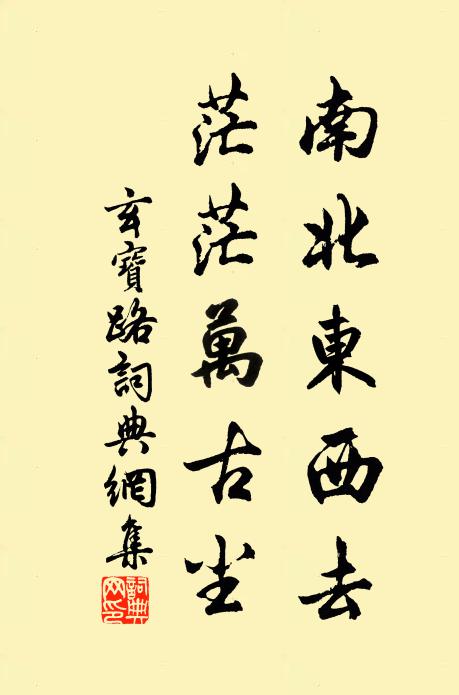 南北東西去
茫茫萬古尘
玄寶路詞典網集
詞典
网印